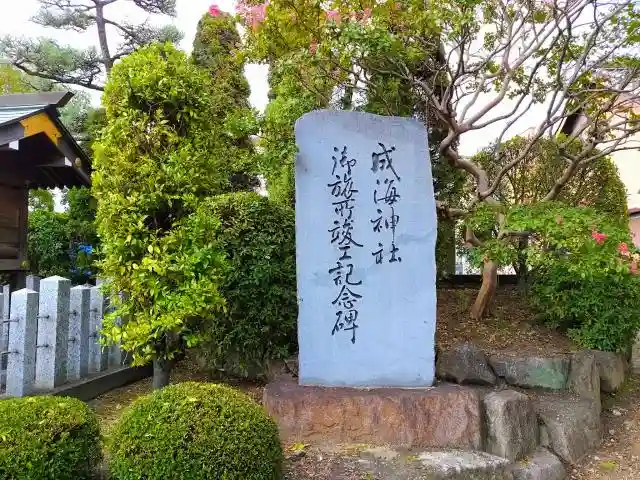 成海神社
御旅所竣工記念碑